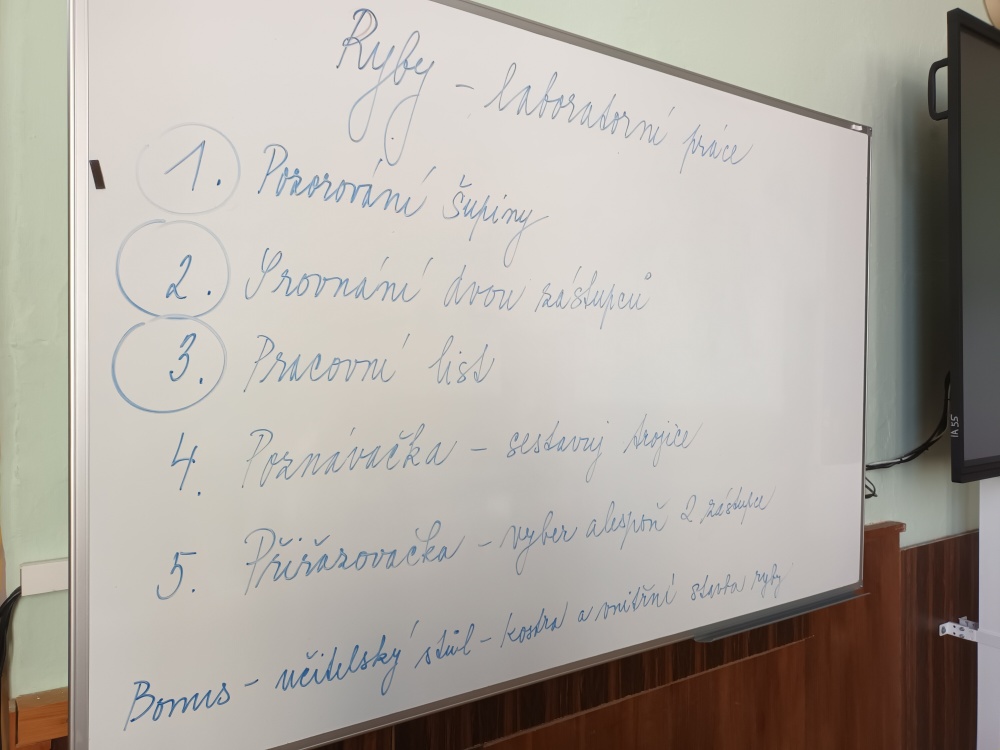 Ryby - laboratorní práce
1. Pozorování šupiny
2. Srovnání dvou zástupců
3. Pracovní list
4. Poznávačka - sestavuj trojice
5. Přiřazovačka - vyber alespoň 2 zástupce
Bonus - učitelský stůl - kostra a vnitřní stavba ryby
IA 55